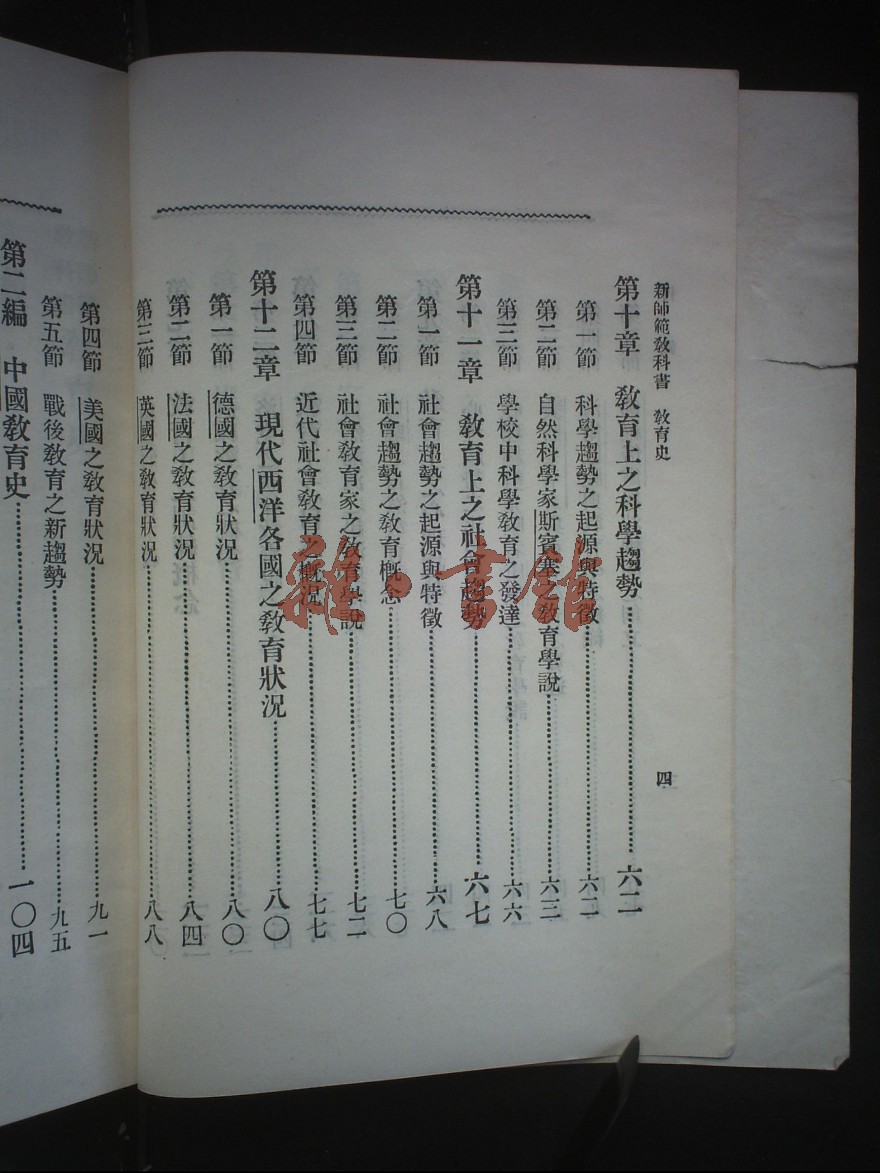 新師範教科書　教育史
四
第十章　教育上之科學趨勢……六二
第一節　科學趨勢之起源與特徵……六二
第二節　自然科學家斯賓塞之教育學說……六三
第三節　學校中科學教育之發達……六六
第十一章　教育上之社會趨勢……六七
第一節　社會趨勢之起源與特徵……六八
第二節　社會趨勢之教育概念……七〇
第三節　社會教育家之教育學說……七二
第四節　近代社會教育之概況……七七
第十二章　現代西洋各國之教育狀況……八〇
第一節　德國之教育狀況……八〇
第二節　法國之教育狀況……八四
第三節　英國之教育狀況……八八
第四節　美國之教育狀況……九一
第五節　戰後教育之新趨勢……九五
第二編　中國教育史……一〇四
雜·書館